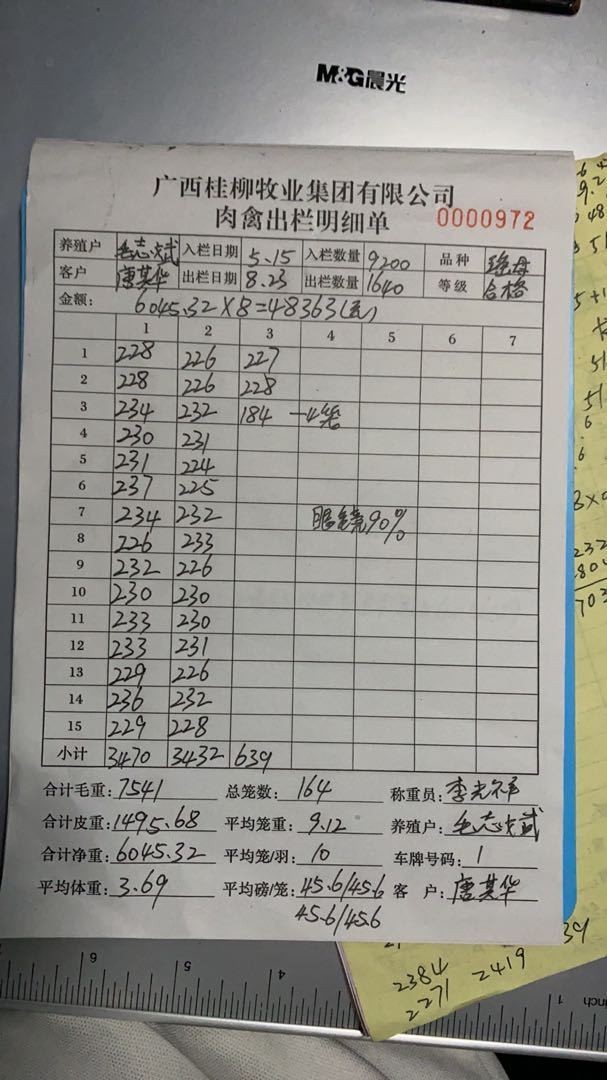 M&G晨光
广西桂柳牧业集团有限公司
肉禽出栏明细单 0000972
养殖户 毛志斌 入栏日期 5.15 入栏数量 9200 品种
客户 唐其华 出栏日期 8.23 出栏数量 1640 等级 合格
金额: 6045.32×8=48363(元)
1 2 3 4 5 6 7
1 228 226 227
2 228 226 228
3 234 232 184 一4笼
4 230 231
5 231 224
6 237 225
7 234 232 眼镜90%
8 226 233
9 232 226
10 230 230
11 233 230
12 233 231
13 229 226
14 236 232
15 229 228
小计 3470 3432 639
合计毛重: 7541 总笼数: 164 称重员: 李光祥
合计皮重: 1495.68 平均笼重: 9.12 养殖户: 毛志斌
合计净重: 6045.32 平均笼/羽: 10 车牌号码: 1
平均体重: 3.69 平均磅/笼: 45.6/45.6 客 户: 唐其华
45.6/45.6
39
2384 2419
2271
6 5 4 1 inch